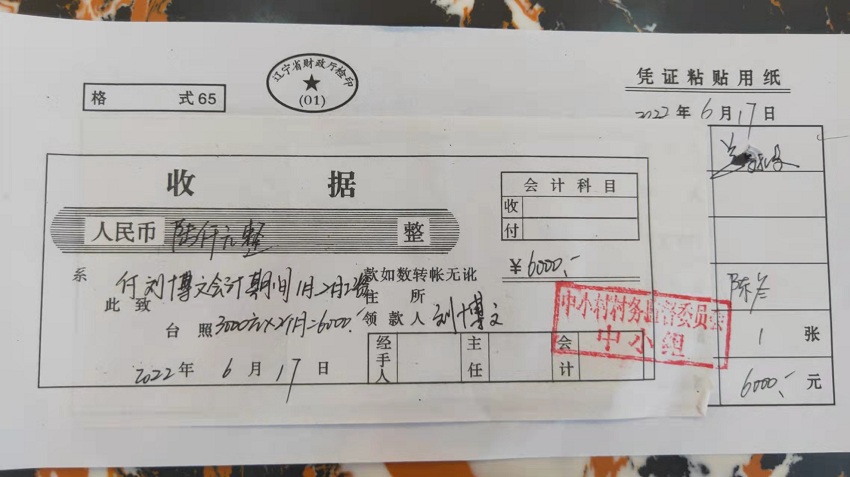 辽宁省财政厅检印
(01)
格 式65
凭证粘贴用纸
2022年6月17日
收 据
会计科目
收
付
人民币 陆仟元整 整
¥6000.-
系 付刘博文会计期间1月2月 款如数转帐无讹
此致 住 所
台照 3000元×2个月=6000.- 领款人 刘博文
经手人 主任 会计
2022年6月17日
中小村村务监督委员会
中小组
陈
1 张
6000.- 元